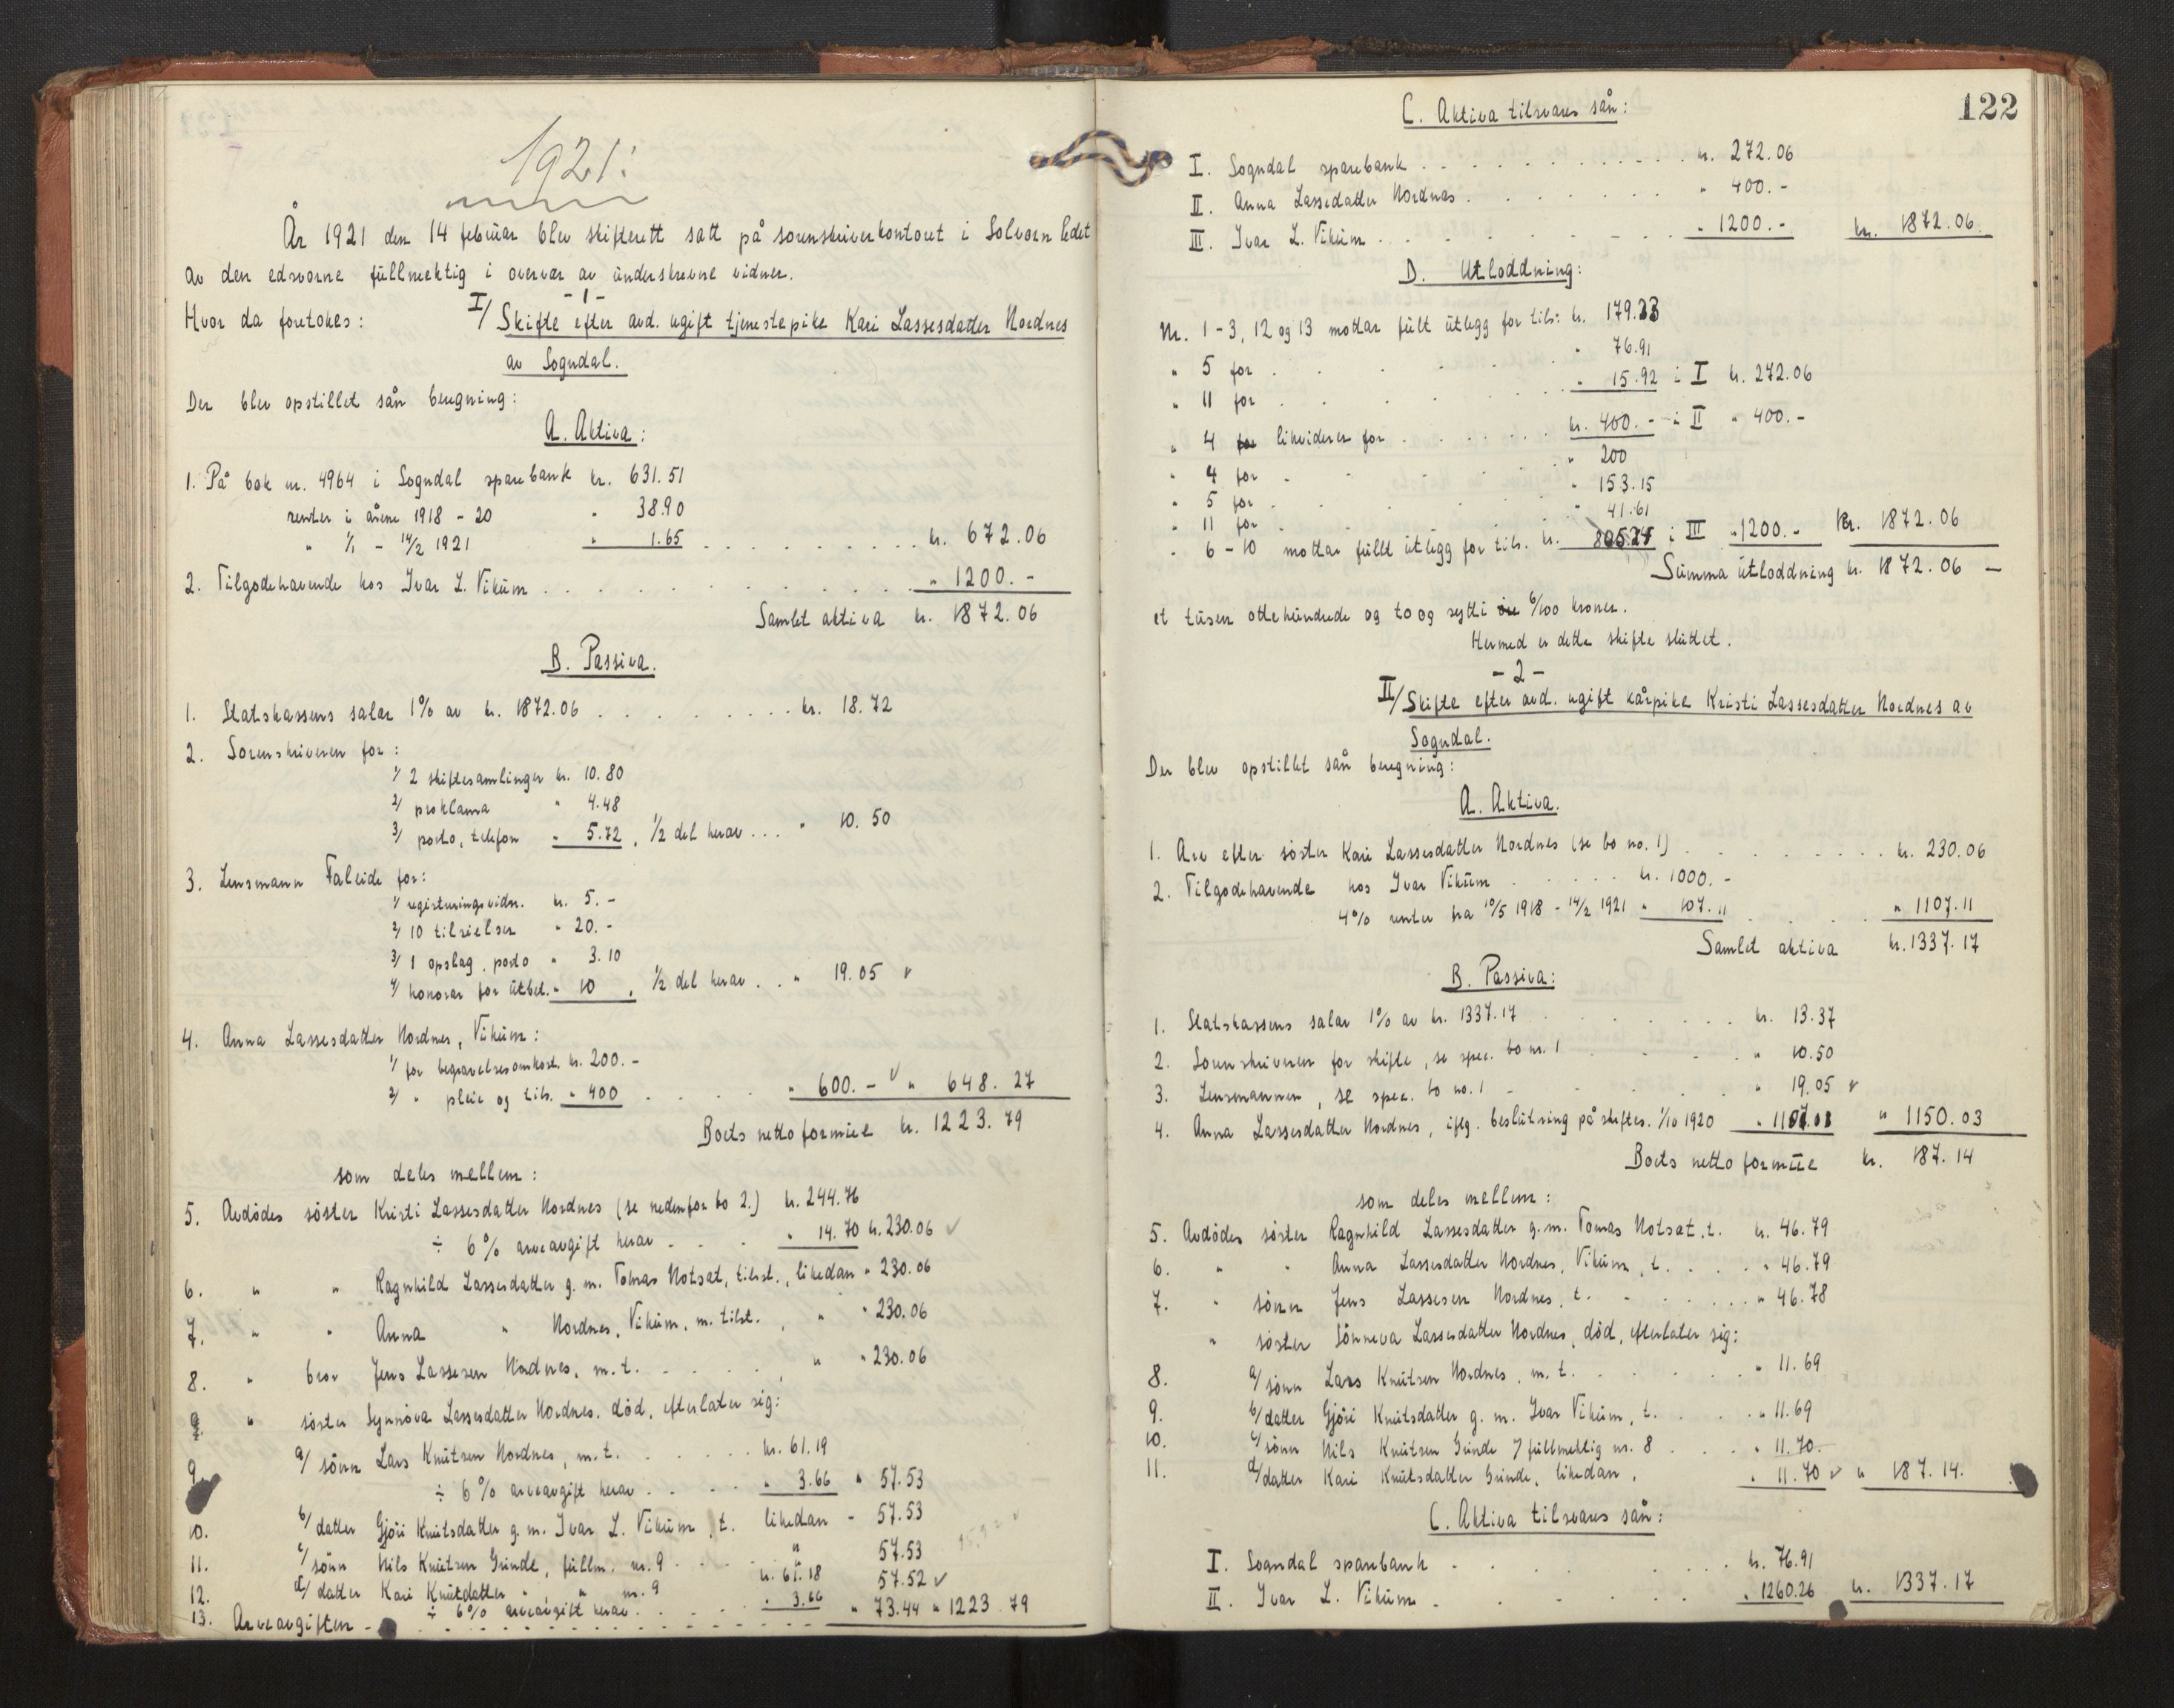 1921:
År 1921 den 14 februar blev skifterett satt på sorenskriverkontoret i Solvorn ledet
av den edsvorne fullmektig i overvær av underskrevne vidner.
- 1 -
Hvor da foretokes: I/ Skifte efter avd. ugift tjenestepike Kari Lassesdatter Nordnes
av Sogndal.
Der blev opstillet sån beregning:
A. Aktiva:
1. På bok nr. 4964 i Sogndal sparebank kr. 631.51
renter i årene 1918 - 20 " 38.90
" 1/1 - 14/2 1921 " 1.65 kr. 672.06
2. Tilgodehavende hos Ivar L. Vikum " 1200.-
Samlet aktiva kr. 1872.06
B. Passiva.
1. Statskassens salær 1% av kr. 1872.06 kr. 18.72
2. Sorenskriveren for:
1/ 2 skiftesamlinger kr. 10.80
2/ proklama " 4.48
3/ porto, telefon " 5.72, 1/2 del herav " 10.50
3. Lensmann Faleide for:
1/ registreringsvidn. kr. 5.-
2/ 10 tilsielser " 20.-
3/ 1 opslag, porto " 3.10
4/ honorar for utbet. " 10, 1/2 del herav " 19.05
4. Anna Lassesdatter Nordnes, Vikum:
1/ for begravelsesomkost. kr. 200.-
2/ " pleie og tils. " 400 " 600.- " 648.27
Boets netto formue kr. 1223.79
som deles mellem:
5. Avdödes söster Kristi Lassesdatter Nordnes (se nedenfor bo 2.) kr. 244.76
÷ 6% arveavgift herav " 14.70 kr. 230.06
6. " " Ragnhild Lassesdatter g.m. Tomas Notsat, tilst., likedan " 230.06
7. " " Anna " Nordnes, Vikum, m. tilst., " " 230.06
8. " bror Jens Lassesen Nordnes, m.t. " " 230.06
" söster Synnöva Lassesdatter Nordnes, död, efterlater sig:
9. a/ sönn Lars Knutsen Nordnes, m.t. kr. 61.19
÷ 6% arveavgift herav " 3.66 " 57.53
10. b/ datter Gjöri Knutsdatter g.m. Ivar L. Vikum, t. likedan - 57.53
11. c/ sönn Nils Knutsen Grinde, fullm. nr. 9 " 57.53
12. d/ datter Kari Knutsdatter " " nr. 9 kr. 61.18 57.52
÷ 6% arveavgift herav " 3.66
13. Arveavgiften " 73.44 " 1223.79
122
C. Aktiva tilsvares sån:
I. Sogndal sparebank kr. 272.06
II. Anna Lassedatter Nordnes " 400.-
III. Ivar L. Vikum " 1200.- kr. 1872.06.
D. Utloddning:
Nr. 1-3, 12 og 13 mottar fult utlegg for tils: kr. 179.23
" 5 for " 76.91
" 11 for " 15.92 i I kr. 272.06
" 4 for likviderer for kr. 400.- i II " 400.-
" 4 for " 200
" 5 for " 153.15
" 11 for " 41.61
" 6-10 mottar fullt utlegg for tils. kr. 805.24 i III " 1200.- Kr. 1872.06
Summa utloddning kr. 1872.06 -
et tusen ottehundrede og to og sytti 6/100 kroner.
Hermed er dette skifte sluttet.
- 2 -
II/ Skifte efter avd. ugift kårpike Kristi Lassesdatter Nordnes av
Sogndal.
Der blev opstillet sån beregning:
A. Aktiva.
1. Arv efter söster Kari Lassesdatter Nordnes (se bo no. 1) kr. 230.06
2. Tilgodehavende hos Ivar Vikum kr. 1000.-
4% renter fra 10/5 1918 - 14/2 1921 " 107.11 " 1107.11
Samlet aktiva kr. 1337.17
B. Passiva:
1. Statskassens salær 1% av kr. 1337.17 kr. 13.37
2. Sorenskriveren for skifte, se spec. bo nr. 1 " 10.50
3. Lensmannen, se spec. bo no. 1 " 19.05
4. Anna Lassesdatter Nordnes, iflg. beslutning på skiftes. 1/10 1920 " 1107.11 " 1150.03
Boets netto formue kr. 187.14
som deles mellem:
5. Avdödes söster Ragnhild Lassesdatter g.m. Tomas Notsat, t. kr. 46.79
6. " " Anna Lassesdatter Nordnes, Vikum, t. " 46.79
7. " sönn Jens Lassesen Nordnes, t. " 46.78
" söster Sönneva Lassesdatter Nordnes, död, efterlater sig:
8. a/ sönn Lars Knutsen Nordnes, m.t. " 11.69
9. b/ datter Gjöri Knutsdatter g.m. Ivar Vikum, t. " 11.69
10. c/ sönn Nils Knutsen Grinde / fullmektig nr. 8 " 11.70.-
11. d/ datter Kari Knutsdatter Grinde, likedan, " 11.70 " 187.14.
C. Aktiva tilsvares sån:
I. Sogndal sparebank kr. 76.91
II. Ivar L. Vikum " 1260.26 kr. 1337.17